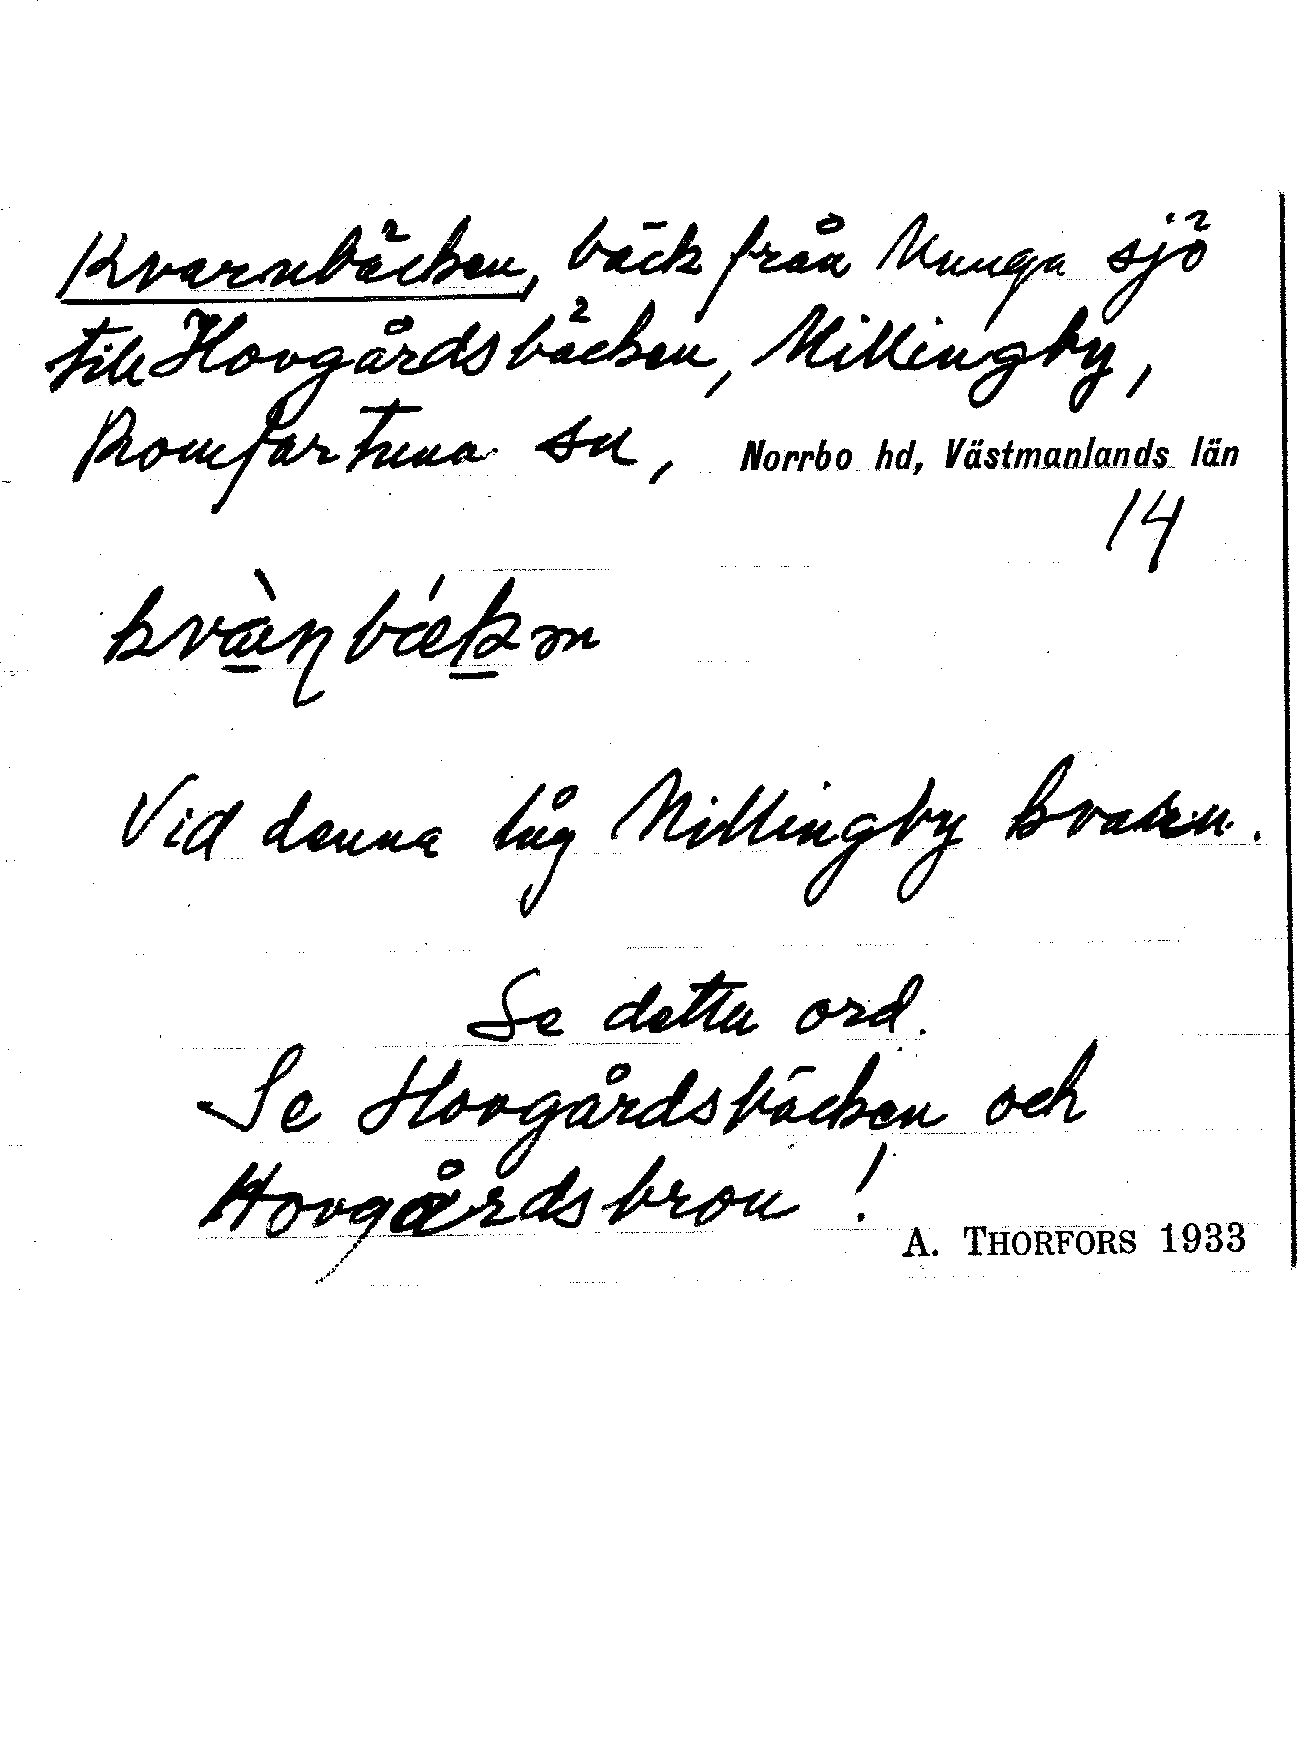 Kvarnbäcken, bäck från Munga sjö
till Hovgårdsbäcken, Nillingby,
Romfartuna sn, Norrbo hd, Västmanlands län
14
Vid denna låg Nillingby kvarn.
Se detta ord.
Se Hovgårdsbäcken och
Hovgårdsbron!
A. THORFORS 1933